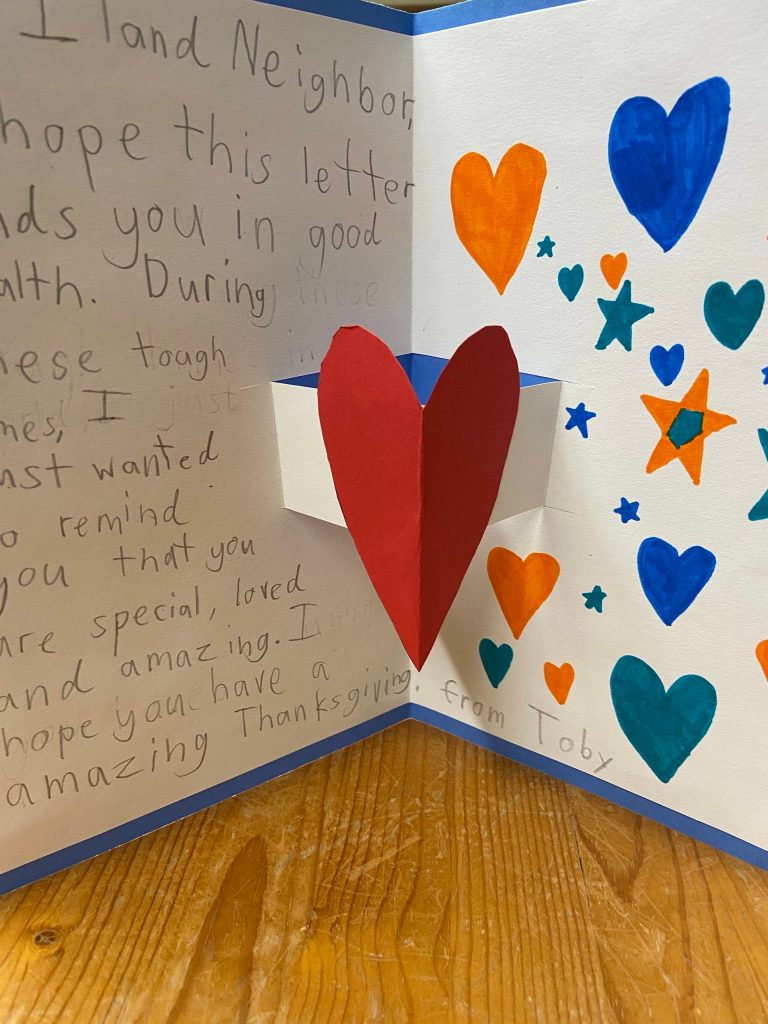 I land Neighbor,
hope this letter
nds you in good
alth. During
hese tough
mes, I
ust wanted
o remind
you that you
are special, loved
and amazing. I
hope you have a
amazing Thanksgiving.
from Toby